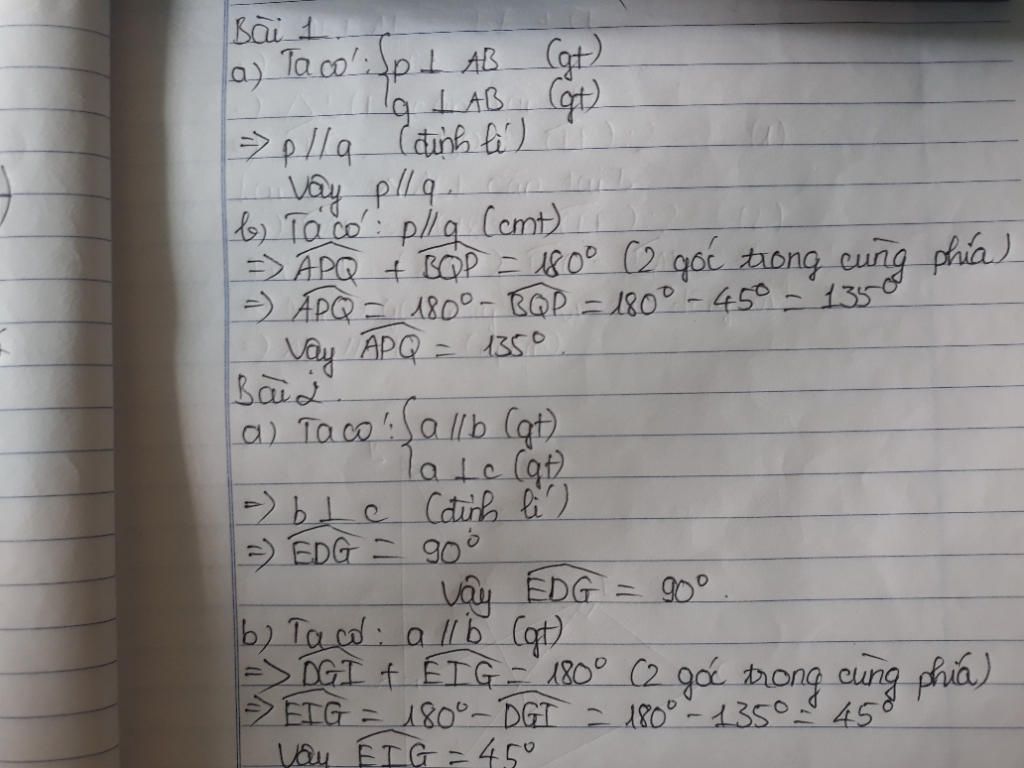 Bài 1
a) Ta có: { p ⊥ AB (gt)
q ⊥ AB (gt)
=> p//q (định lí)
Vậy p//q.
b) Ta có: p//q (cmt)
=> \widehat{APQ} + \widehat{BQP} = 180° (2 góc trong cùng phía)
=> \widehat{APQ} = 180° - \widehat{BQP} = 180° - 45° = 135°
Vậy \widehat{APQ} = 135°.
Bài 2.
a) Ta có: { a//b (gt)
a ⊥ c (gt)
=> b ⊥ c (định lí)
=> \widehat{EDG} = 90°
Vậy \widehat{EDG} = 90°.
b) Ta có: a//b (gt)
=> \widehat{DGI} + \widehat{EIG} = 180° (2 góc trong cùng phía)
=> \widehat{EIG} = 180° - \widehat{DGI} = 180° - 135° = 45°
Vậy \widehat{EIG} = 45°